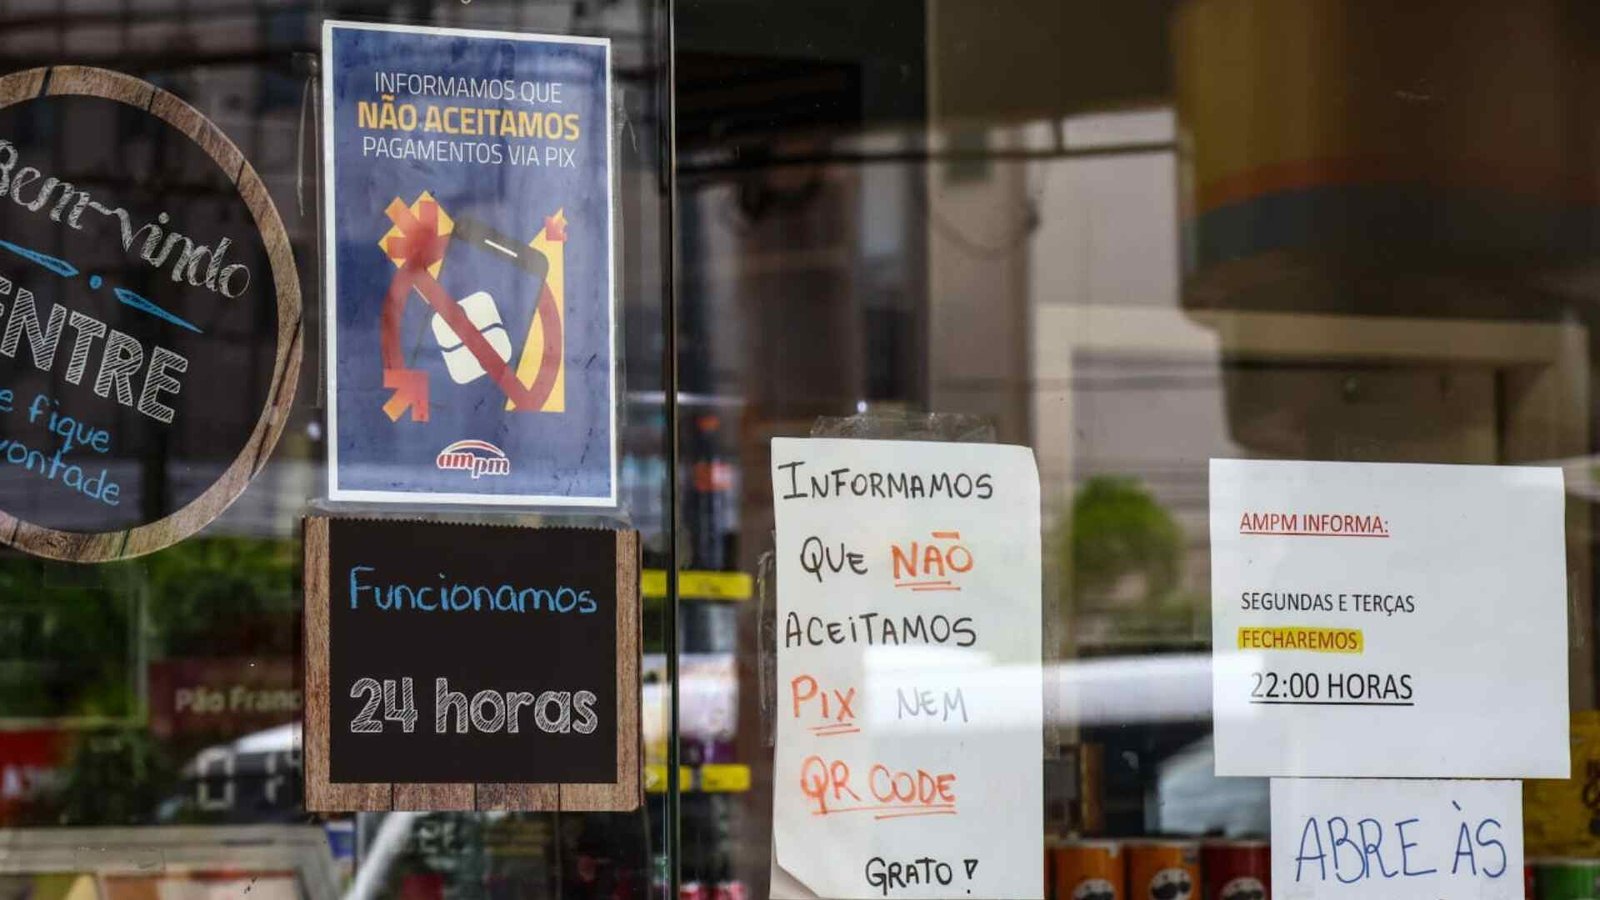 Bem-vindo
ENTRE
e fique
vontade
INFORMAMOS QUE
NÃO ACEITAMOS
PAGAMENTOS VIA PIX
ampm
Funcionamos
24 horas
Pão Franc
INFORMAMOS
QUE NÃO
ACEITAMOS
PIX NEM
QR CODE
GRATO!
AMPM INFORMA:
SEGUNDAS E TERÇAS
FECHAREMOS
22:00 HORAS
ABRE ÀS